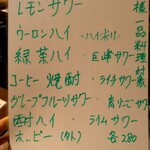 レモンサワー
ウーロンハイ ・ハイボール
緑茶ハイ ・巨峰サワー
コーヒー焼酎 ・ライチサワー
グレープフルーツサワー ・青りんごサワー
酎ハイ ・ライムサワー
ホッピー(外) 各280
様一品料理対象